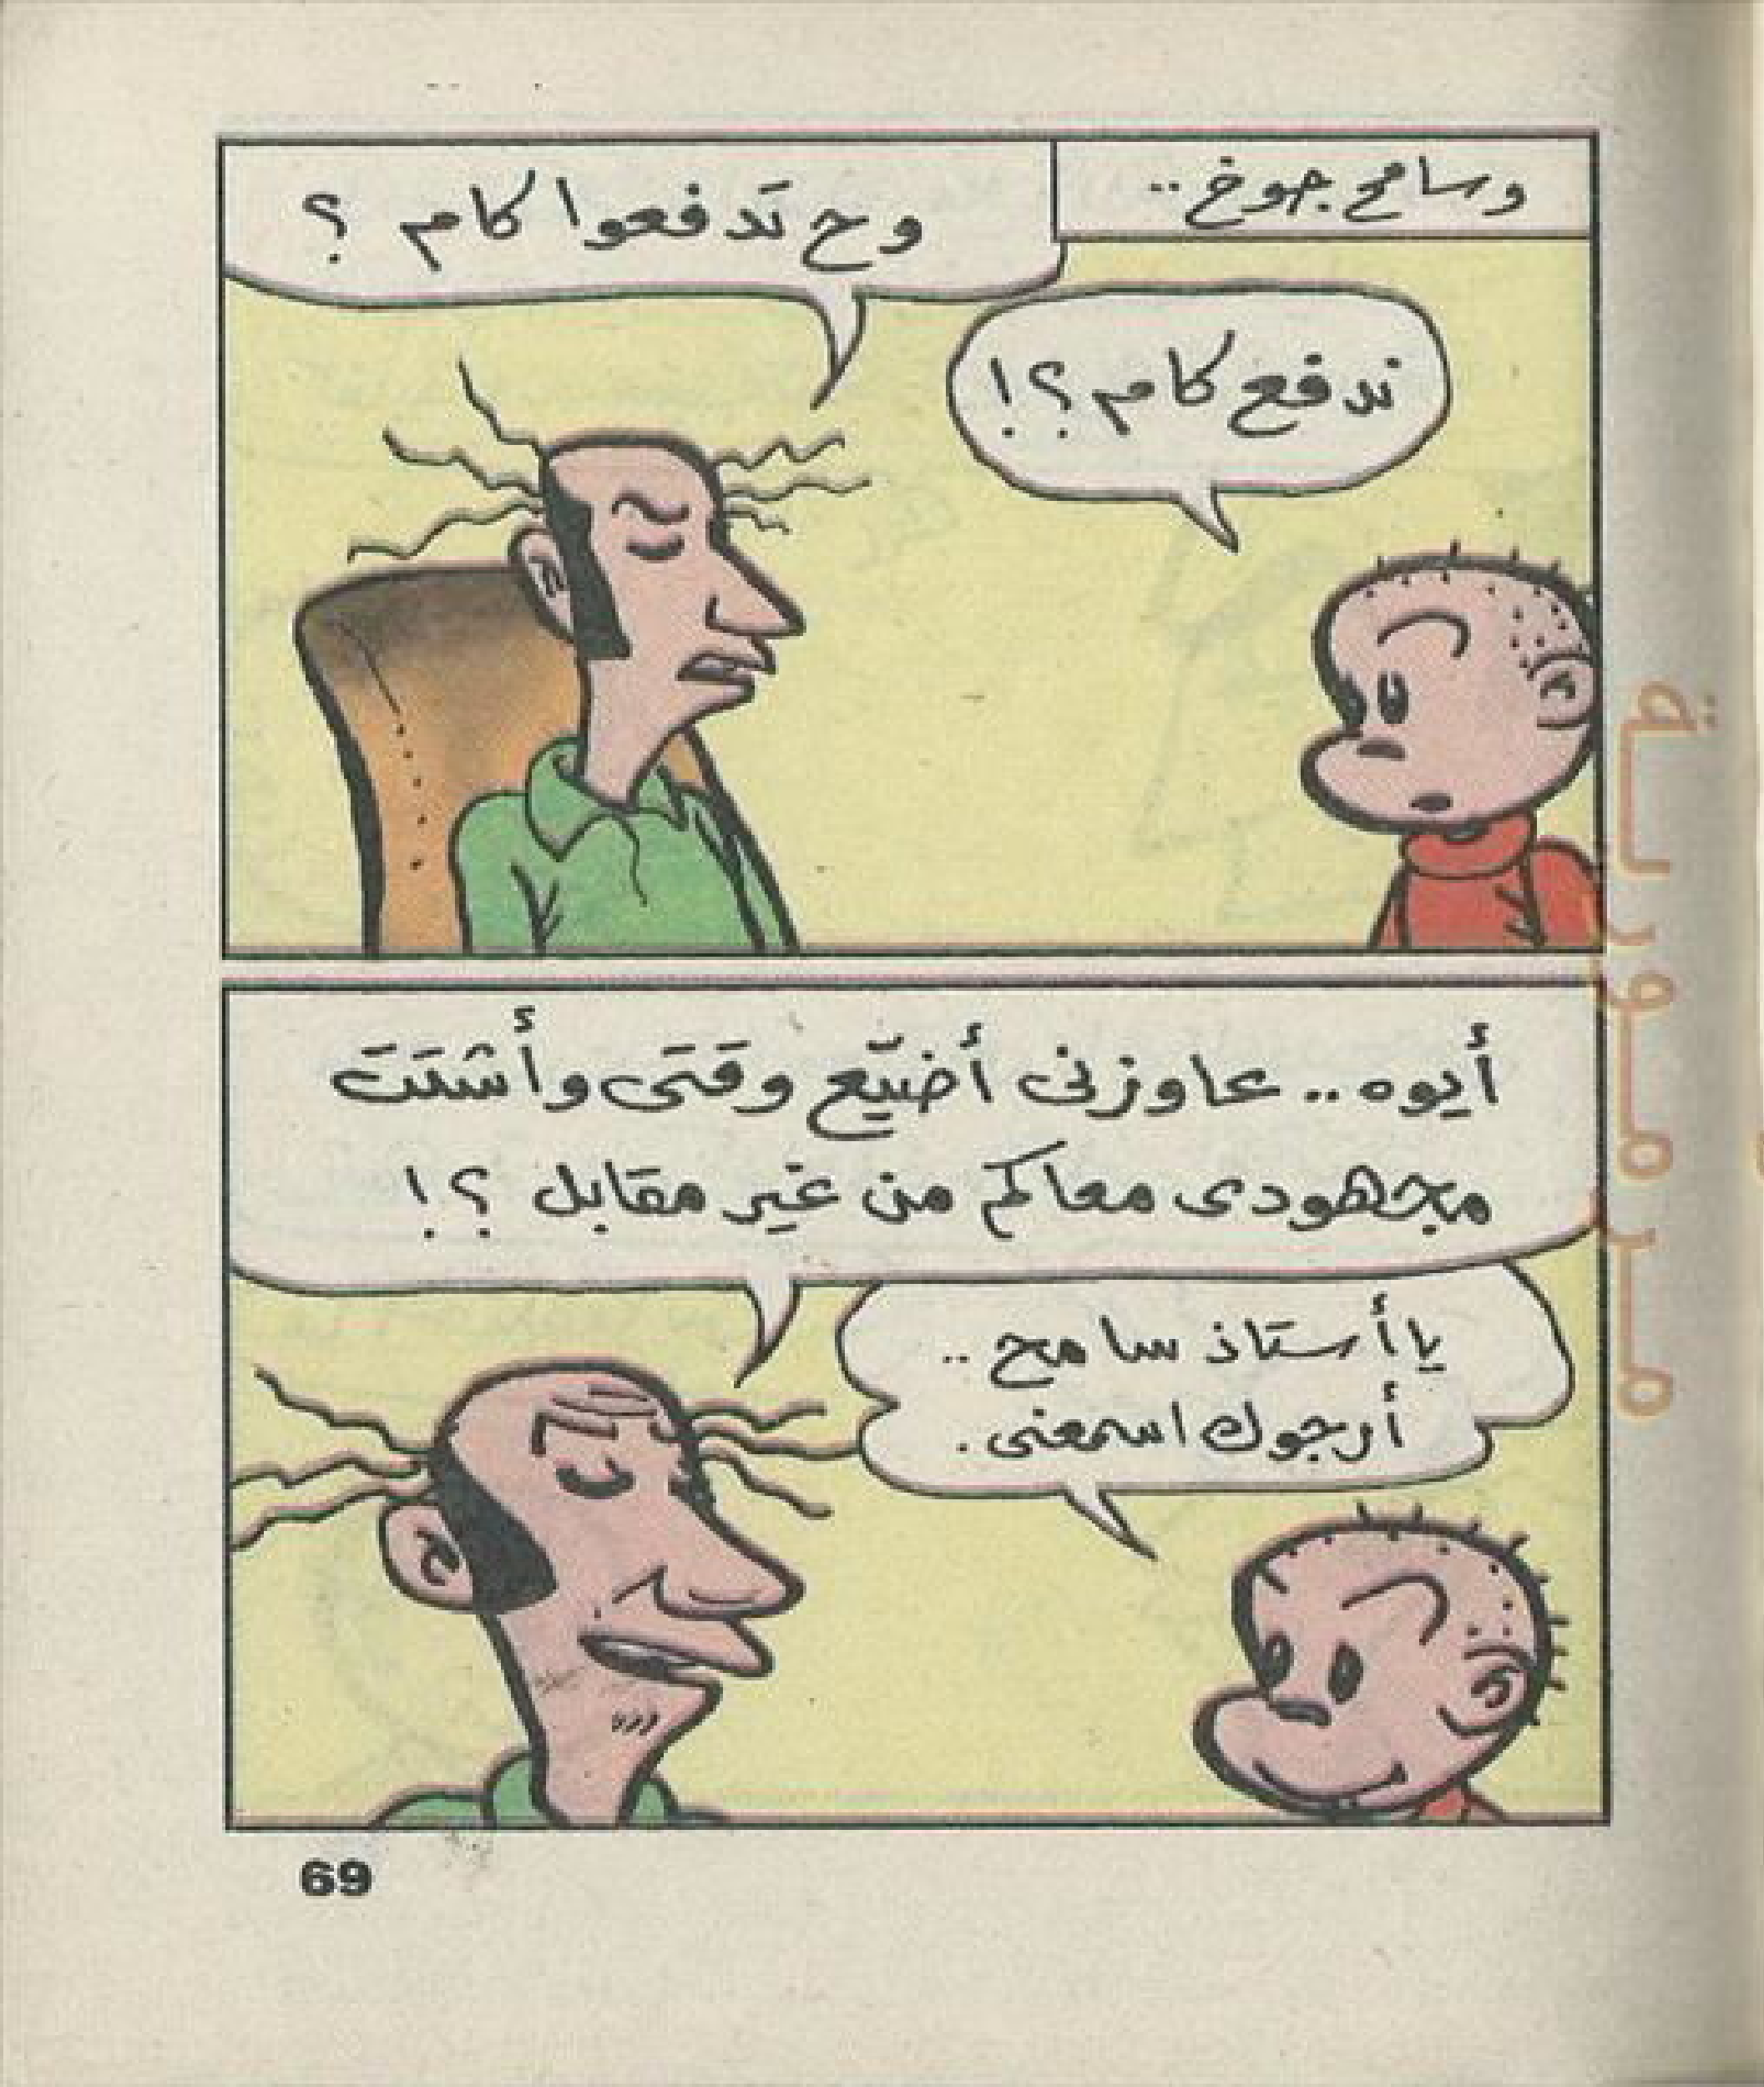 وسامح جوخ..
وح تدفعوا كام ؟
ندفع كام؟!
أيوه.. عاوزنى أضيّع وقتى وأشتت
مجهودى معاكم من غير مقابل ؟!
يا أستاذ سامح..
أرجوك اسمعنى.
69